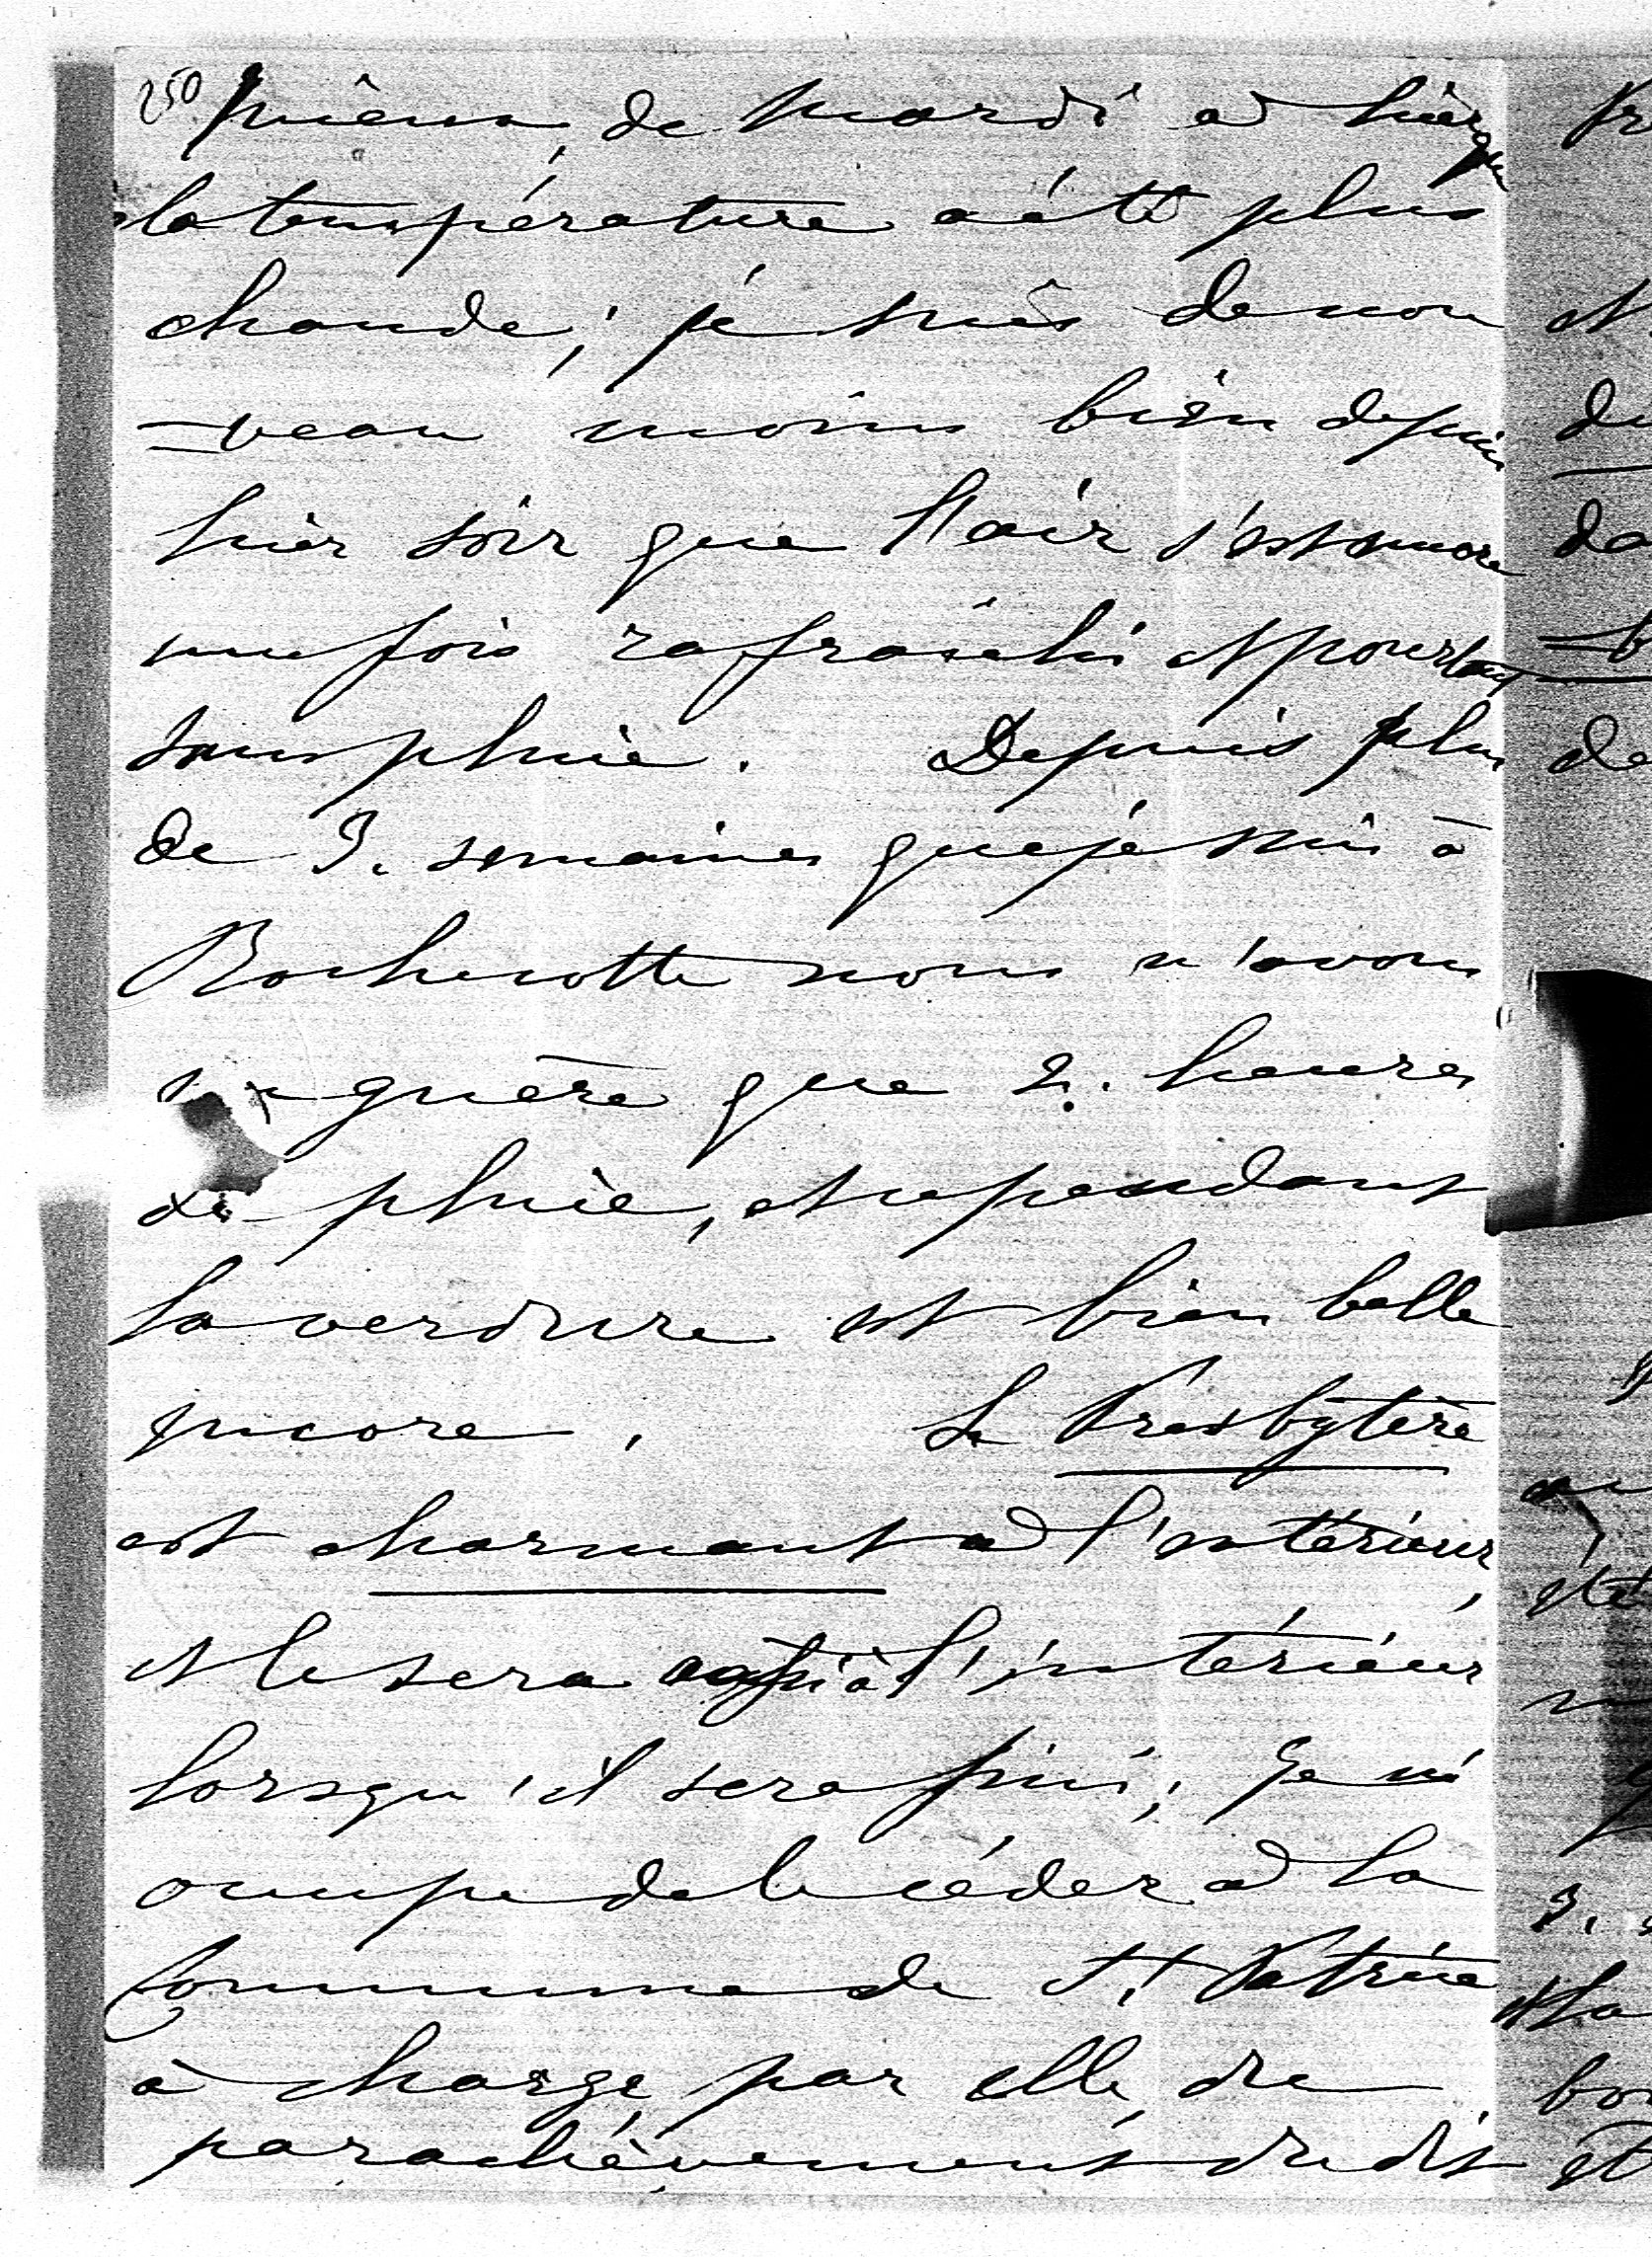 250 mieux, de mardi à hier que
la température a été plus
chaude; je suis de nou
=veau moins bien depuis
hier soir que l'air s'est encore
une fois rafraîchi et pourtant
sans pluie. Depuis plus
de 3. semaines que je suis à
Rochecotte nous n'avons
guère que 2. heures
de pluie, et cependant
la verdure est bien belle
encore. Le Presbytère
est charmant à l'extérieur,
et le sera aussi à l'intérieur
lorsqu'il sera fini; je m'
occupe de le céder à la
Commune de St. Patrice
à charge, par elle, du
parachèvement dudit